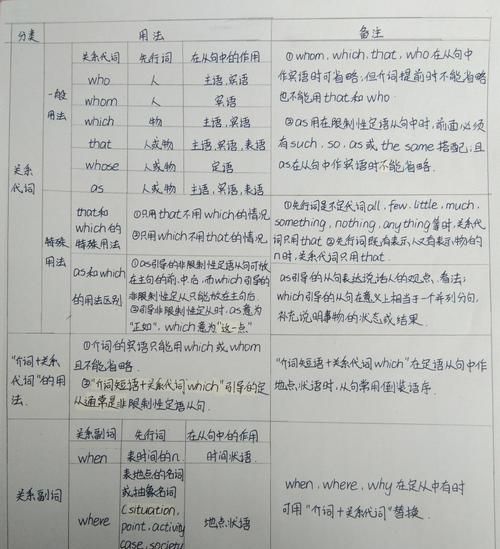 分类 用法 备注
关系代词 先行词 在从句中的作用
who 人 主语,宾语
whom 人 宾语
which 物 主语,宾语
that 人或物 主语,宾语,表语
whose 人或物 定语
as 人或物 主语,宾语,表语
一般
用法
①whom,which,that,who在从句中
作宾语时可省略,但介词提前时不能省略
也不能用that和who.
②as用在限制性定语从句中时,前面必须
有such,so,as或the same搭配;且
as在从句中作宾语时不能省略.
关系
代词
特殊
用法
that和
which的
特殊用法
①只用that不用which的情况
②只用which不用that的情况
①先行词是不定代词all,few,little,much,
something,nothing,anything等时,关系代
词只用that ②先行词既有表示人又有表示物的
n时,关系代词只用that.
as和which
的用法区别
①as引导的非限制性定语从句可放
在主句的前,中,后,而which引导的
非限制性定从只能放在主句后.
②引导非限制性定从时,as意为
"正如",which意为"这一点"
as引导的从句表达说话人的观点、看法;
which引导的从句在意义上相当于一个并列分句,
补充说明事物的状态或结果.
"介词+关系
代词"的用
法.
①介词的宾语只能用which或whom
且不能省略.
②"介词短语+关系代词which"引导的定
从通常是非限制性定语从句.
"介词短语+关系代词which"在定语从句中作
地点状语时,从句常用倒装语序.
关系副词
关系副词 先行词 在从句中的作用
when 表时间的n. 时间状语.
where
表地点的名词
或抽象名词
(situation,
point,activity
case,society
地点状语
when,where,why在定从中有时
可用"介词+关系代词"替换.